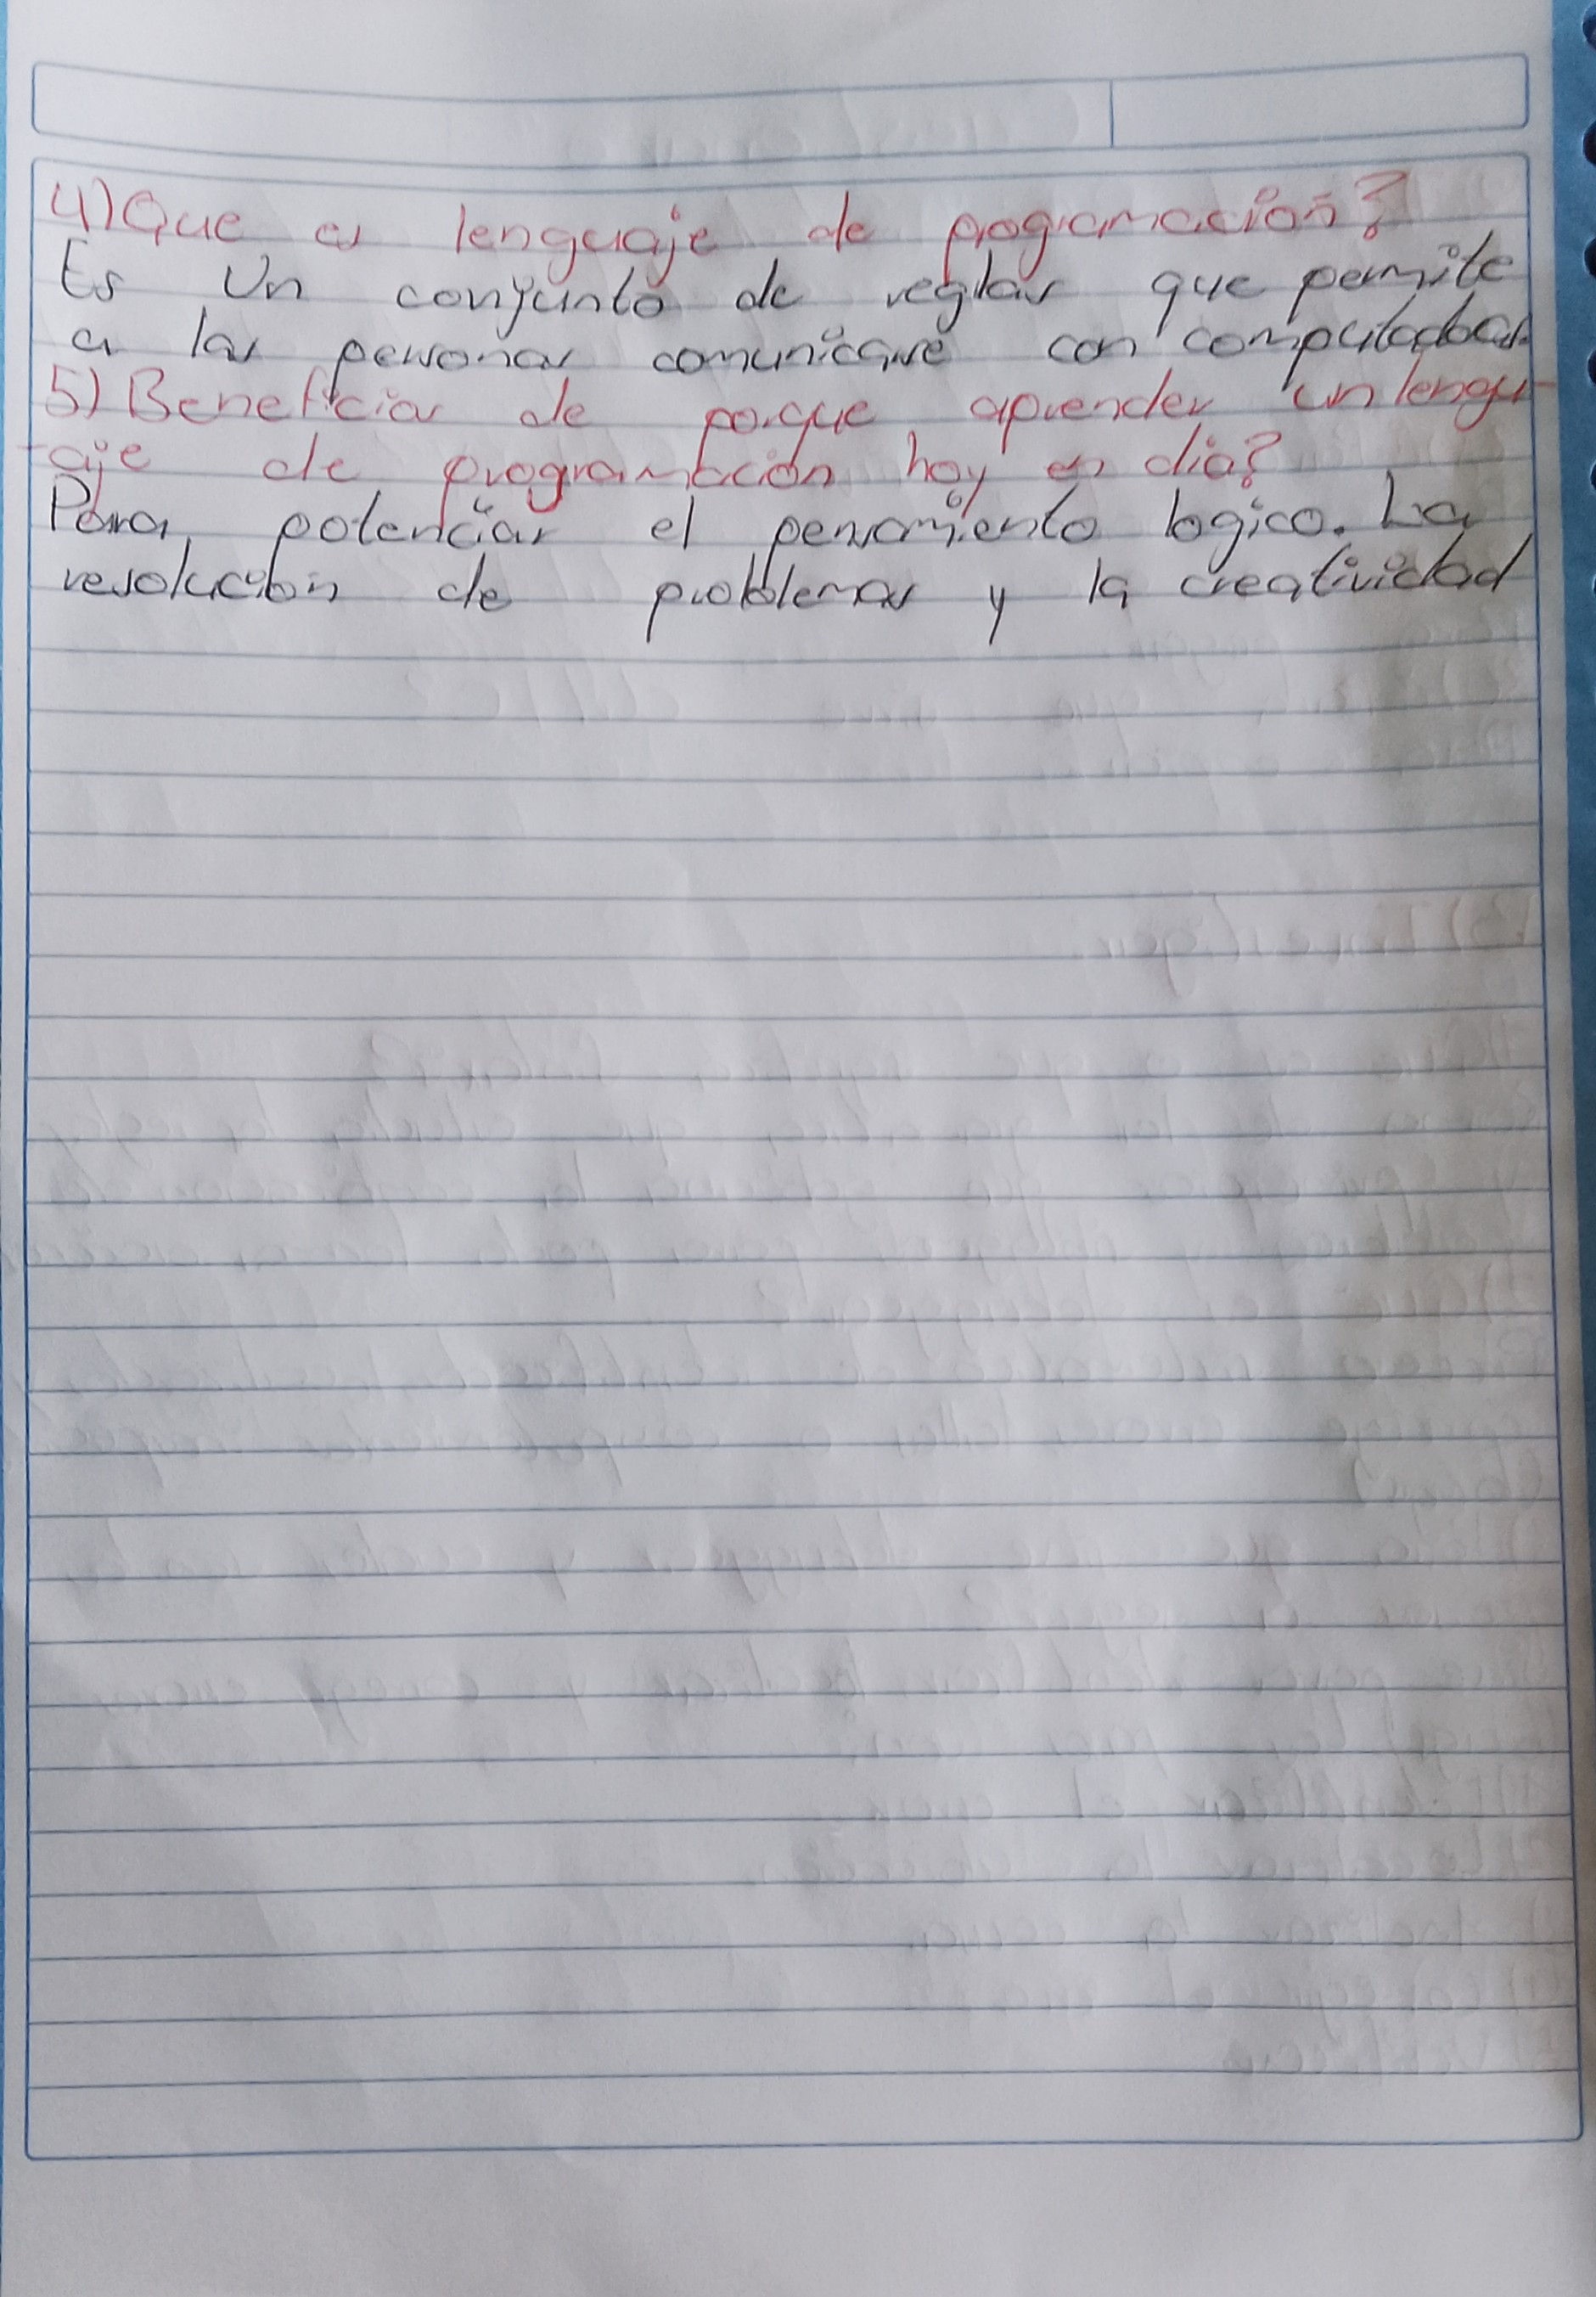 4) Que es lenguaje de programación?
Es Un conjunto de reglas que permite
a las personas comunicarse con computadoras
5) Beneficios de porque aprender un lengu-
-aje de programación hoy en dia?
Para potenciar el pensamiento logico. La
resolución de problemas y la creatividad